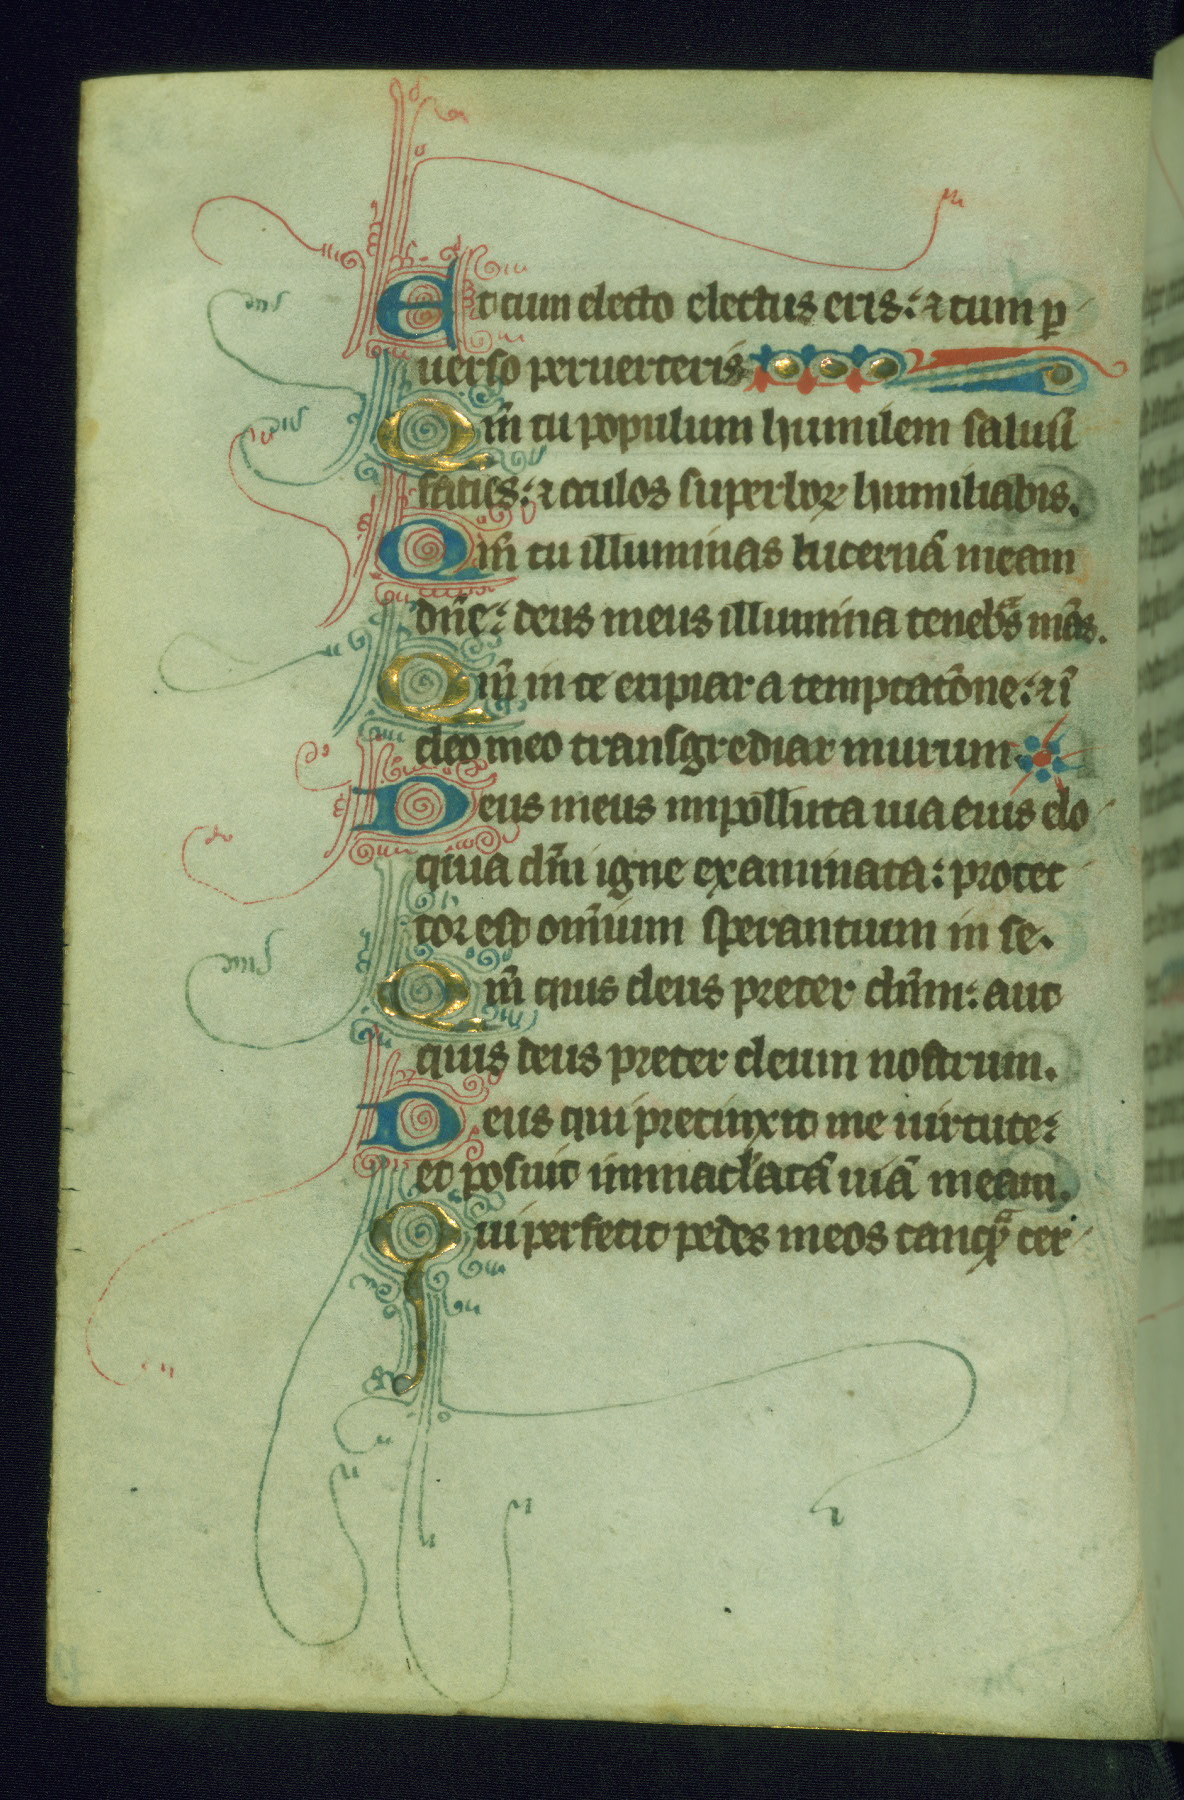 Et cum electo electus eris: ⁊ cum ꝑ
uerso peruerteris
Qm̄ tu populum humilem saluū
facies: ⁊ oculos superboꝝ humiliabis.
Qm̄ tu illuminas lucernā meam
dn̄e: deus meus illumina tenebᵃs mās.
Qm̄ in te eripiar a temptatōne: ⁊ ī
deo meo transgrediar murum
Deus meus impolluta uia eius elo
quia dn̄i igne examinata: protec
tor est omīum sperantium in se.
Qm̄ quis deus preter dn̄m: aut
quis deus preter deum nostrum.
Deus qui precinxit me uirtute:
et posuit immaclatā uiā meam.
Qui perfecit pedes meos tanqᵃ cer